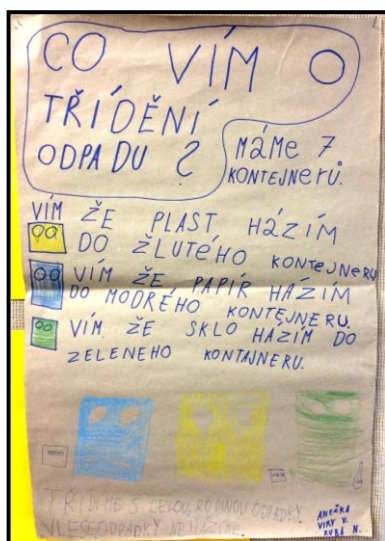 CO VÍM O
TŘÍDĚNÍ
ODPADU ?
MÁME 7
KONTEJNERŮ.
VÍM ŽE PLAST HÁZÍM
DO ŽLUTÉHO KONTEJNERU
VÍM ŽE PAPÍR HÁZÍM
DO MODRÉHO KONTEJNERU.
VÍM ŽE SKLO HÁZÍM DO
ZELENEHO KONTAJNERU.
TŘÍDÍME S CELOU RODINOU ODPADKY.
V LESE ODPADKY
ANEŽKA
VIKY V.
KUBA N.